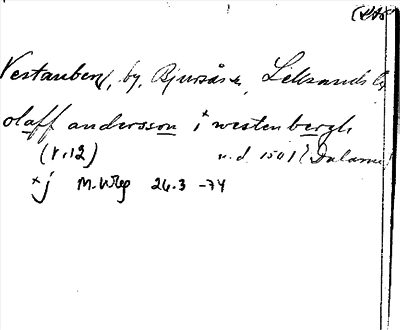 Vestanberg, by, Bjursås sn, Leksands
olaff andersson i* westenbergh
(r. 12) u.d. 1501? Dalarna
*j M. Wbg 26.3 -74